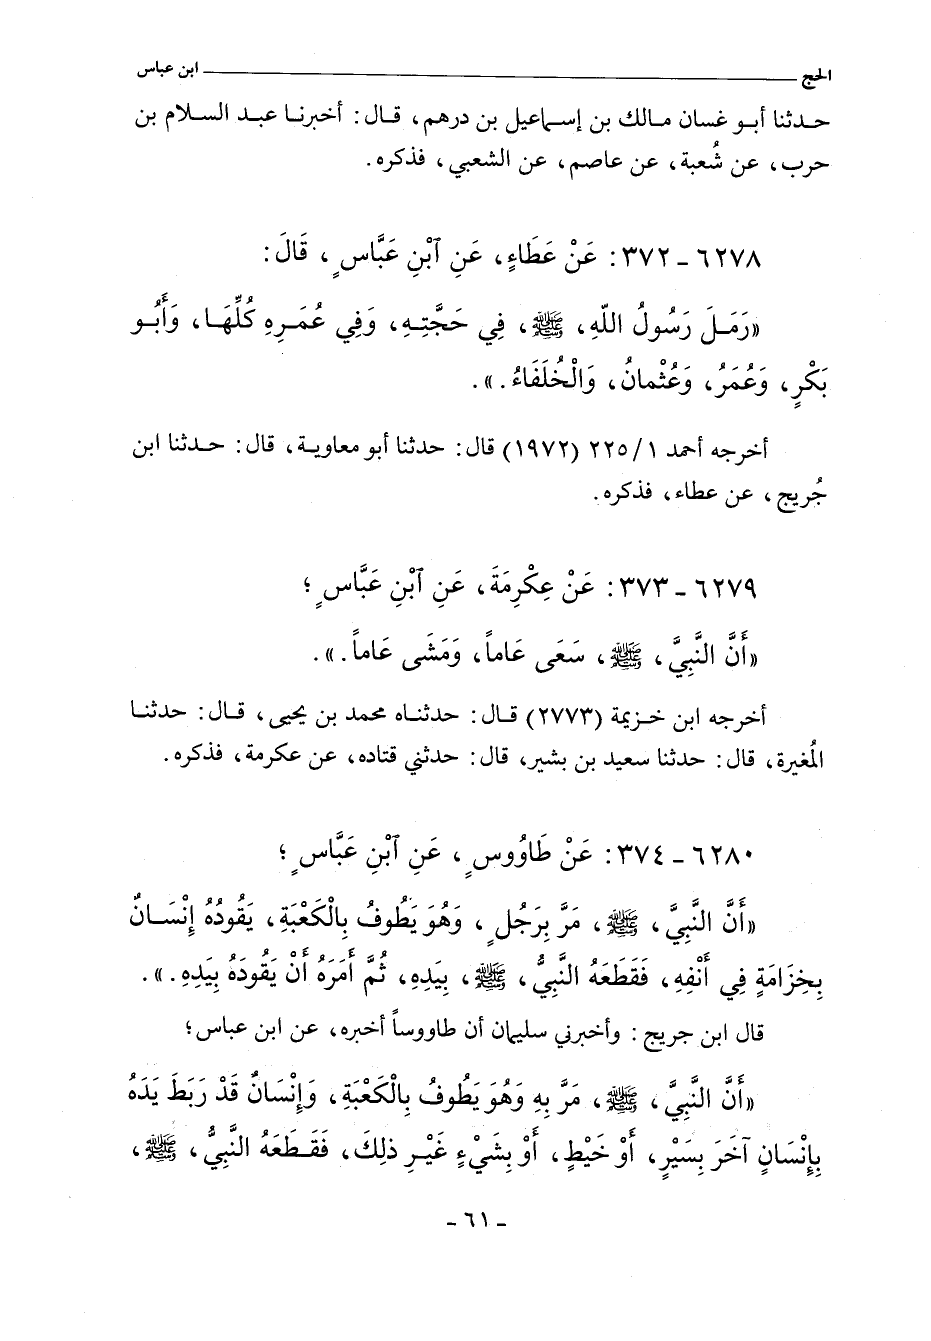 الحج ــــــــــــــــــــ ابن عباس
حدثنا أبو غسان مالك بن إسماعيل بن درهم، قال: أخبرنا عبد السلام بن
حرب، عن شُعبة، عن عاصم، عن الشعبي، فذكره.
٦٢٧٨ - ٣٧٢: عَنْ عَطَاءٍ، عَنِ ٱبْنِ عَبَّاسٍ، قَالَ:
«رَمَلَ رَسُولُ اللّهِ، ﷺ، فِي حَجَّتِهِ، وَفِي عُمَرِهِ كُلِّهَا، وَأَبُو
بَكْرٍ، وَعُمَرُ، وَعُثْمانُ، وَالْخُلَفَاءُ.».
أخرجه أحمد ١/ ٢٢٥ (١٩٧٢) قال: حدثنا أبو معاوية، قال: حدثنا ابن
جُريج، عن عطاء، فذكره.
٦٢٧٩ - ٣٧٣: عَنْ عِكْرِمَةَ، عَنِ ٱبْنِ عَبَّاسٍ؛
«أَنَّ النَّبِيَّ، ﷺ، سَعَى عَاماً، وَمَشَى عَاماً.».
أخرجه ابن خزيمة (٢٧٧٣) قال: حدثناه محمد بن يحيى، قال: حدثنا
المُغيرة، قال: حدثنا سعيد بن بشير، قال: حدثني قتاده، عن عكرمة، فذكره.
٦٢٨٠ - ٣٧٤: عَنْ طَاوُوسٍ، عَنِ ٱبْنِ عَبَّاسٍ؛
«أَنَّ النَّبِيَّ، ﷺ، مَرَّ بِرَجُلٍ، وَهُوَ يَطُوفُ بِالْكَعْبَةِ، يَقُودُهُ إِنْسَانٌ
بِخِزَامَةٍ فِي أَنْفِهِ، فَقَطَعَهُ النَّبِيُّ، ﷺ، بِيَدِهِ، ثُمَّ أَمَرَهُ أَنْ يَقُودَهُ بِيَدِهِ.».
قال ابن جريج: وأخبرني سليمان أن طاووساً أخبره، عن ابن عباس؛
«أَنَّ النَّبِيَّ، ﷺ، مَرَّ بِهِ وَهُوَ يَطُوفُ بِالْكَعْبَةِ، وَإِنْسَانٌ قَدْ رَبَطَ يَدَهُ
بِإِنْسَانٍ آخَرَ بِسَيْرٍ، أَوْ خَيْطٍ، أَوْ بِشَيْءٍ غَيْرِ ذلِكَ، فَقَطَعَهُ النَّبِيُّ، ﷺ،
- ٦١ -